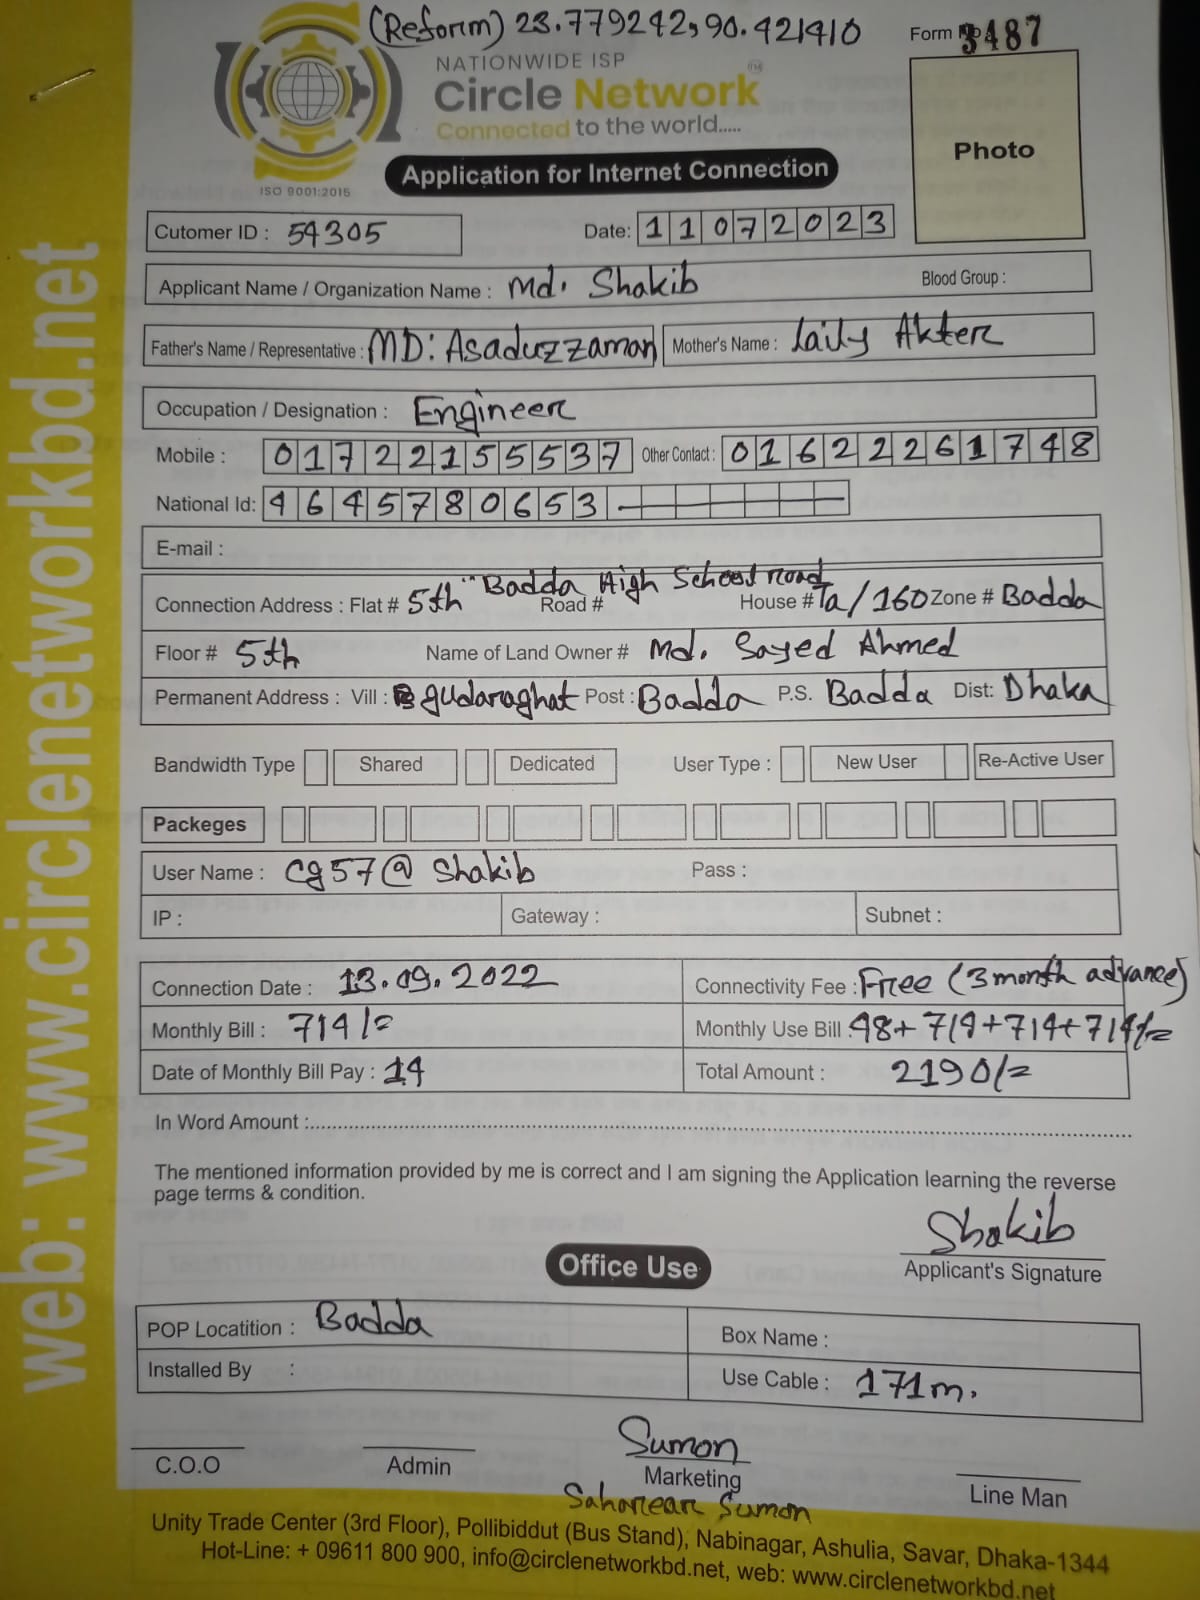 (Reform) 23.779242, 90.421410
Form No 3487
NATIONWIDE ISP
Circle Network
Connected to the world.....
ISO 9001:2015
Photo
Application for Internet Connection
Cutomer ID : 54305
Date: 11072023
Applicant Name / Organization Name : Md. Shakib Blood Group :
Father's Name / Representative : MD: Asaduzzaman Mother's Name : Laily Akter
Occupation / Designation : Engineer
Mobile : 01722155537 Other Contact : 01622261748
National Id: 4645780653
E-mail :
Connection Address : Flat # 5th Road # Badda High School road House # Ta/160 Zone # Badda
Floor # 5th Name of Land Owner # Md. Sayed Ahmed
Permanent Address : Vill : gudaraghat Post : Badda P.S. Badda Dist: Dhaka
Bandwidth Type Shared Dedicated User Type : New User Re-Active User
Packeges
User Name : cg57@Shakib Pass :
IP : Gateway : Subnet :
Connection Date : 13.09.2022 Connectivity Fee : Free (3 month advance)
Monthly Bill : 714/= Monthly Use Bill : 48+714+714+714/=
Date of Monthly Bill Pay : 14 Total Amount : 2190/=
In Word Amount :
The mentioned information provided by me is correct and I am signing the Application learning the reverse
page terms & condition.
Shakib
Applicant's Signature
Office Use
POP Locatition : Badda Box Name :
Installed By : Use Cable : 171m.
Sumon
C.O.O Admin Marketing Line Man
Saharear Sumon
Unity Trade Center (3rd Floor), Pollibiddut (Bus Stand), Nabinagar, Ashulia, Savar, Dhaka-1344
Hot-Line: + 09611 800 900, info@circlenetworkbd.net, web: www.circlenetworkbd.net
web: www.circlenetworkbd.net